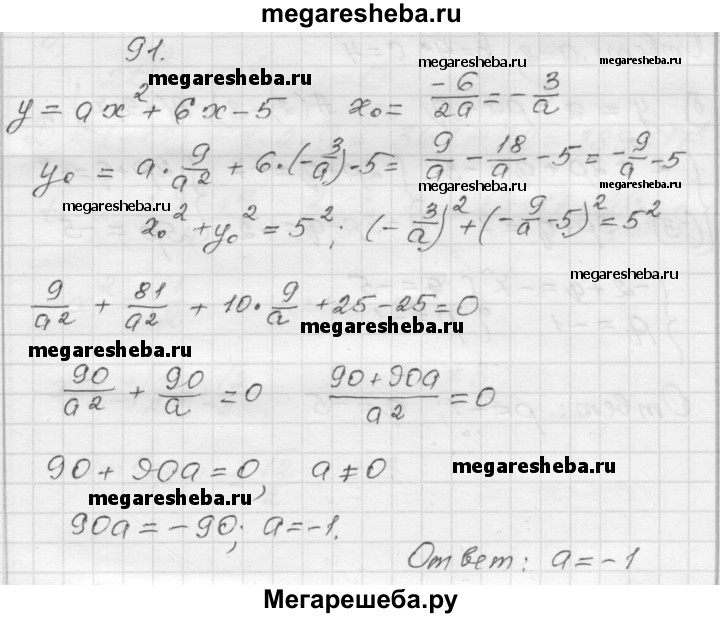 megaresheba.ru
91. megaresheba.ru megaresheba.ru
y = ax² + 6x − 5 x₀ = −6/2a = −3/a
megaresheba.ru
y₀ = a · 9/a² + 6 · (−3/a) − 5 = 9/a − 18/a − 5 = −9/a − 5
megaresheba.ru megaresheba.ru megaresheba.ru
x₀² + y₀² = 5²; (−3/a)² + (−9/a − 5)² = 5²
megaresheba.ru
9/a² + 81/a² + 10 · 9/a + 25 − 25 = 0
megaresheba.ru
megaresheba.ru
90/a² + 90/a = 0 (90 + 90a)/a² = 0
90 + 90a = 0, a ≠ 0 megaresheba.ru
megaresheba.ru
90a = −90; a = −1.
Ответ: a = −1
megaresheba.ru
Мегарешеба.ру